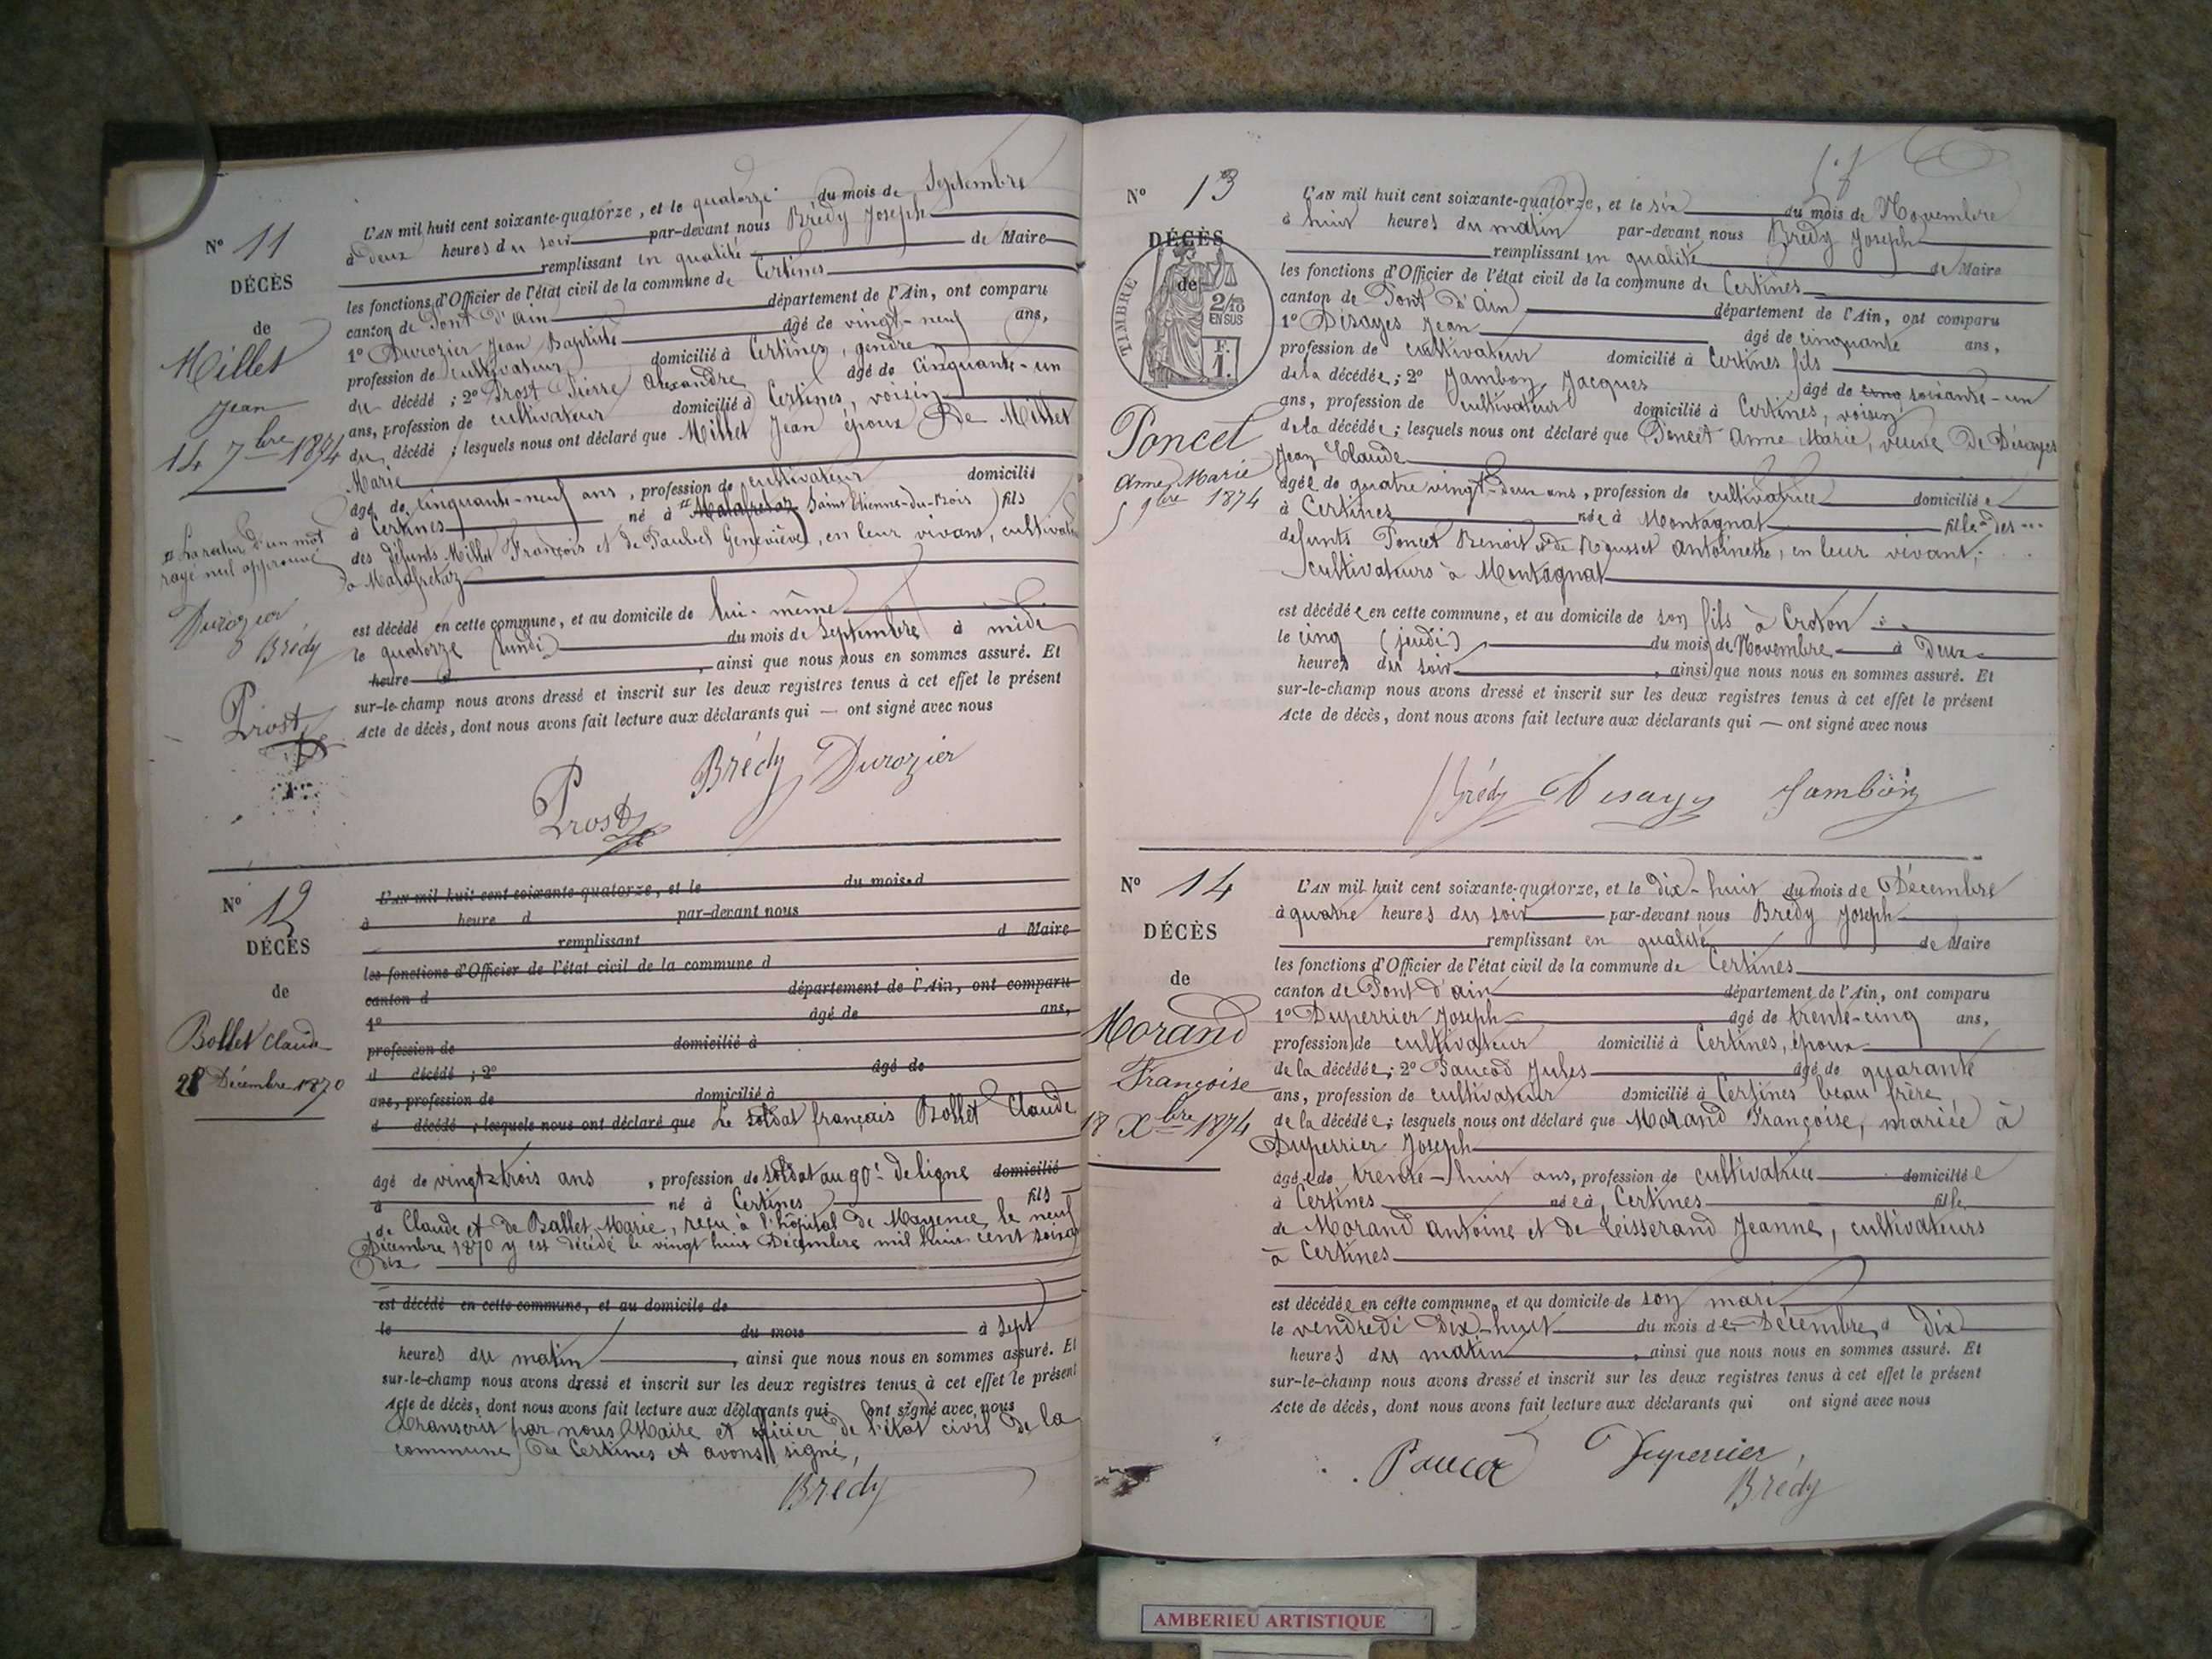 N° 11
DÉCÈS
de
Millet
Jean
14 7bre 1874
L'AN mil huit cent soixante-quatorze, et le quatorze du mois de Septembre
à deux heures du soir par-devant nous Brédy Joseph
remplissant en qualité de Maire
les fonctions d'Officier de l'état civil de la commune de Certines
canton de Pont d'Ain département de l'Ain, ont comparu
1° Durozier Jean Baptiste âgé de vingt-neuf ans,
profession de cultivateur domicilié à Certines, gendre
du décédé ; 2° Prost Pierre Alexandre âgé de cinquante-un
ans, profession de cultivateur domicilié à Certines, voisin
du décédé ; lesquels nous ont déclaré que Millet Jean époux De Millet
Marie
âgé de cinquante-neuf ans, profession de cultivateur domicilié
à Certines né à Malafretaz Saint Etienne-du-Bois fils
des défunts Millet François et de Paubel Geneviève, en leur vivant, cultivate
à Malafretaz
est décédé en cette commune, et au domicile de lui-même
le quatorze (lundi) du mois de Septembre à midi
heure d , ainsi que nous nous en sommes assuré. Et
sur-le-champ nous avons dressé et inscrit sur les deux registres tenus à cet effet le présent
Acte de décès, dont nous avons fait lecture aux déclarants qui — ont signé avec nous
La ratur d'un mot
rayé nul approuvé
Durozier
Brédy
Prost
Brédy Durozier
Prost
N° 12
DÉCÈS
de
Bollet Claude
28 Décembre 1870
L'AN mil huit cent soixante-quatorze, et le du mois d
à heure d par-devant nous
remplissant d Maire
les fonctions d'Officier de l'état civil de la commune d
canton d département de l'Ain, ont comparu
1° âgé de ans,
profession de domicilié à
d décédé ; 2° âgé de
ans, profession de domicilié à
d décédé ; lesquels nous ont déclaré que Le soldat français Bollet Claude
âgé de vingt-trois ans , profession de soldat au 90e de ligne domicilié
à né à Certines fils
de Claude et de Ballet Marie, reçu à l'hôpital de Mayence le neuf
Décembre 1870 y est décédé le vingt huit Décembre mil huit cent soixan
dix
est décédé en cette commune, et au domicile de
le du mois à sept
heures du matin , ainsi que nous nous en sommes assuré. Et
sur-le-champ nous avons dressé et inscrit sur les deux registres tenus à cet effet le présent
Acte de décès, dont nous avons fait lecture aux déclarants qui ont signé avec nous
Transcrit par nous Maire et officier de l'état civil de la
commune de Certines et avons signé,
Brédy
N° 13
DÉCÈS
de
TIMBRE
2/10
EN SUS
F.
1.
Poncet
Anne Marie
5 9bre 1874
L'AN mil huit cent soixante-quatorze, et le six du mois de Novembre
à huit heures du matin par-devant nous Brédy Joseph
remplissant en qualité de Maire
les fonctions d'Officier de l'état civil de la commune de Certines
canton de Pont d'Ain département de l'Ain, ont comparu
1° Désayes Jean âgé de cinquante ans,
profession de cultivateur domicilié à Certines fils
de la décédée ; 2° Jambon Jacques âgé de cinq soixante-un
ans, profession de cultivateur domicilié à Certines, voisin
de la décédée ; lesquels nous ont déclaré que Poncet Anne Marie, veuve De Désayes
Jean Claude
âgée de quatre vingt-deux ans, profession de cultivatrice domiciliée
à Certines née à Montagnat fille des
défunts Poncet Benoit et de Rousset Antoinette, en leur vivant,
cultivateurs à Montagnat
est décédée en cette commune, et au domicile de son fils à Croton
le cinq (jeudi) du mois de Novembre à Deux
heures du soir , ainsi que nous nous en sommes assuré. Et
sur-le-champ nous avons dressé et inscrit sur les deux registres tenus à cet effet le présent
Acte de décès, dont nous avons fait lecture aux déclarants qui — ont signé avec nous
Brédy Desayes Jambon
N° 14
DÉCÈS
de
Morand
Françoise
18 Xbre 1874
L'AN mil huit cent soixante-quatorze, et le dix-huit du mois de Décembre
à quatre heures du soir par-devant nous Brédy Joseph
remplissant en qualité de Maire
les fonctions d'Officier de l'état civil de la commune de Certines
canton de Pont d'ain département de l'Ain, ont comparu
1° Duperrier Joseph âgé de trente-cinq ans,
profession de cultivateur domicilié à Certines, époux
de la décédée ; 2° Paucod Jules âgé de quarante
ans, profession de cultivateur domicilié à Certines beau frère,
de la décédée ; lesquels nous ont déclaré que Morand Françoise, mariée à
Duperrier Joseph
âgée de trente-huit ans, profession de cultivatrice domiciliée
à Certines née à Certines fille
de Morand Antoine et de Teisserand Jeanne, cultivateurs
à Certines
est décédée en cette commune, et au domicile de son mari
le vendredi Dix-huit du mois de Décembre à dix
heures du matin , ainsi que nous nous en sommes assuré. Et
sur-le-champ nous avons dressé et inscrit sur les deux registres tenus à cet effet le présent
Acte de décès, dont nous avons fait lecture aux déclarants qui ont signé avec nous
Paucod Duperrier
Brédy
AMBERIEU ARTISTIQUE